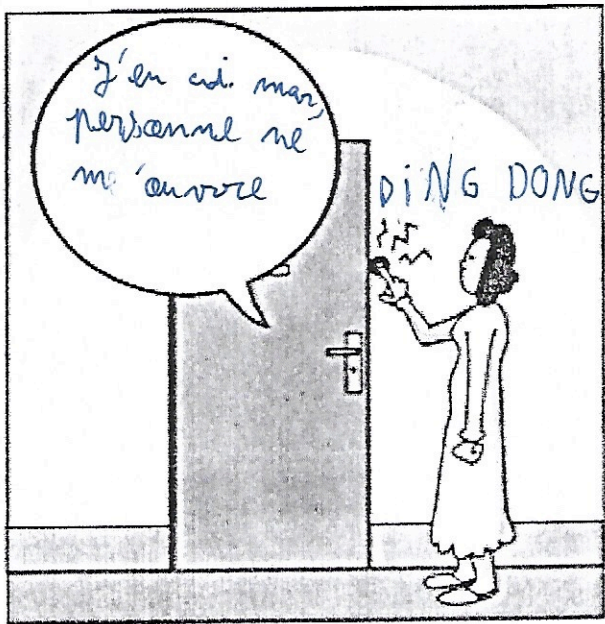 J'en ai mar,
personne ne
m'ouvre
DiNG DONG